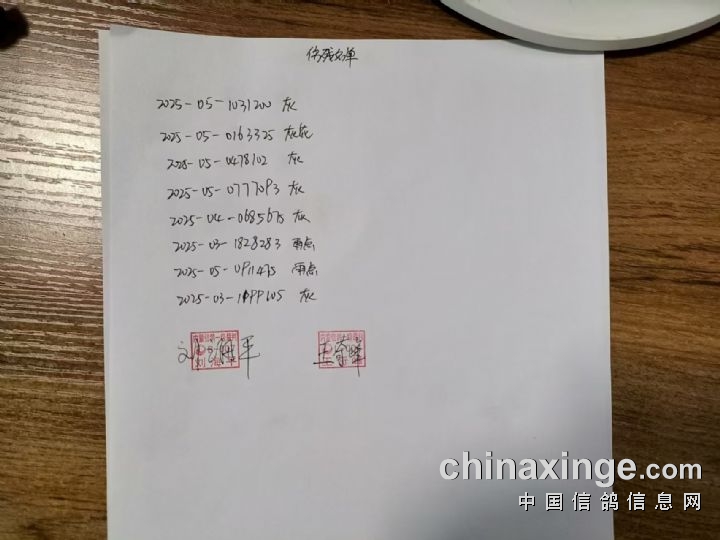 伤残鸽单
2025-05-1031200 灰
2025-05-0163325 灰花
2025-05-0478102 灰
2025-05-0777093 灰
2025-04-0685675 灰
2025-03-1828283 雨点
2025-05-0911475 雨点
2025-03-1199605 灰
chinaxinge.com
中国信鸽信息网